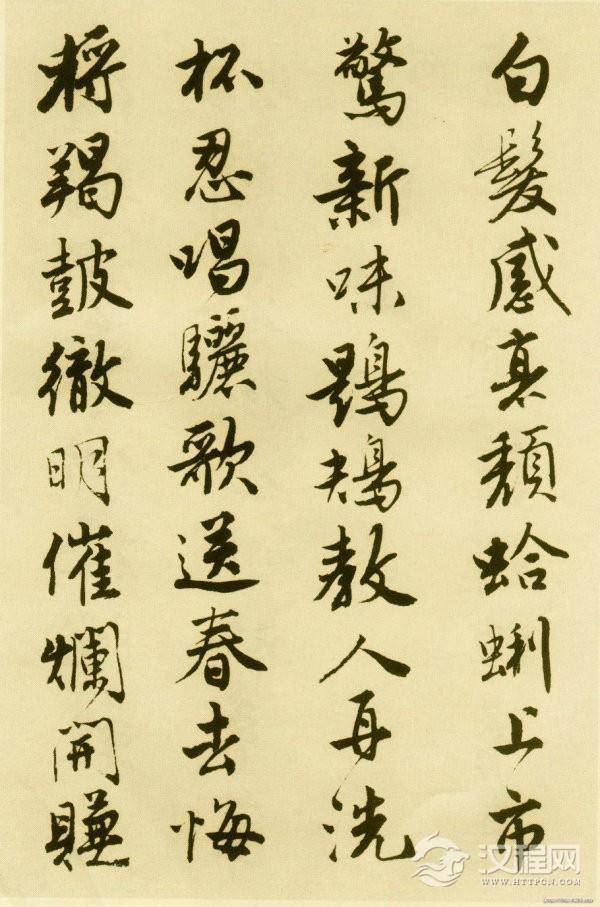 白髮感衰頹蛤蜊上市
驚新味鶗鴂教人再洗
杯忍唱驪歌送春去悔
將羯鼓徹明催爛開賺
汉程网
WWW.HTTPCN.COM